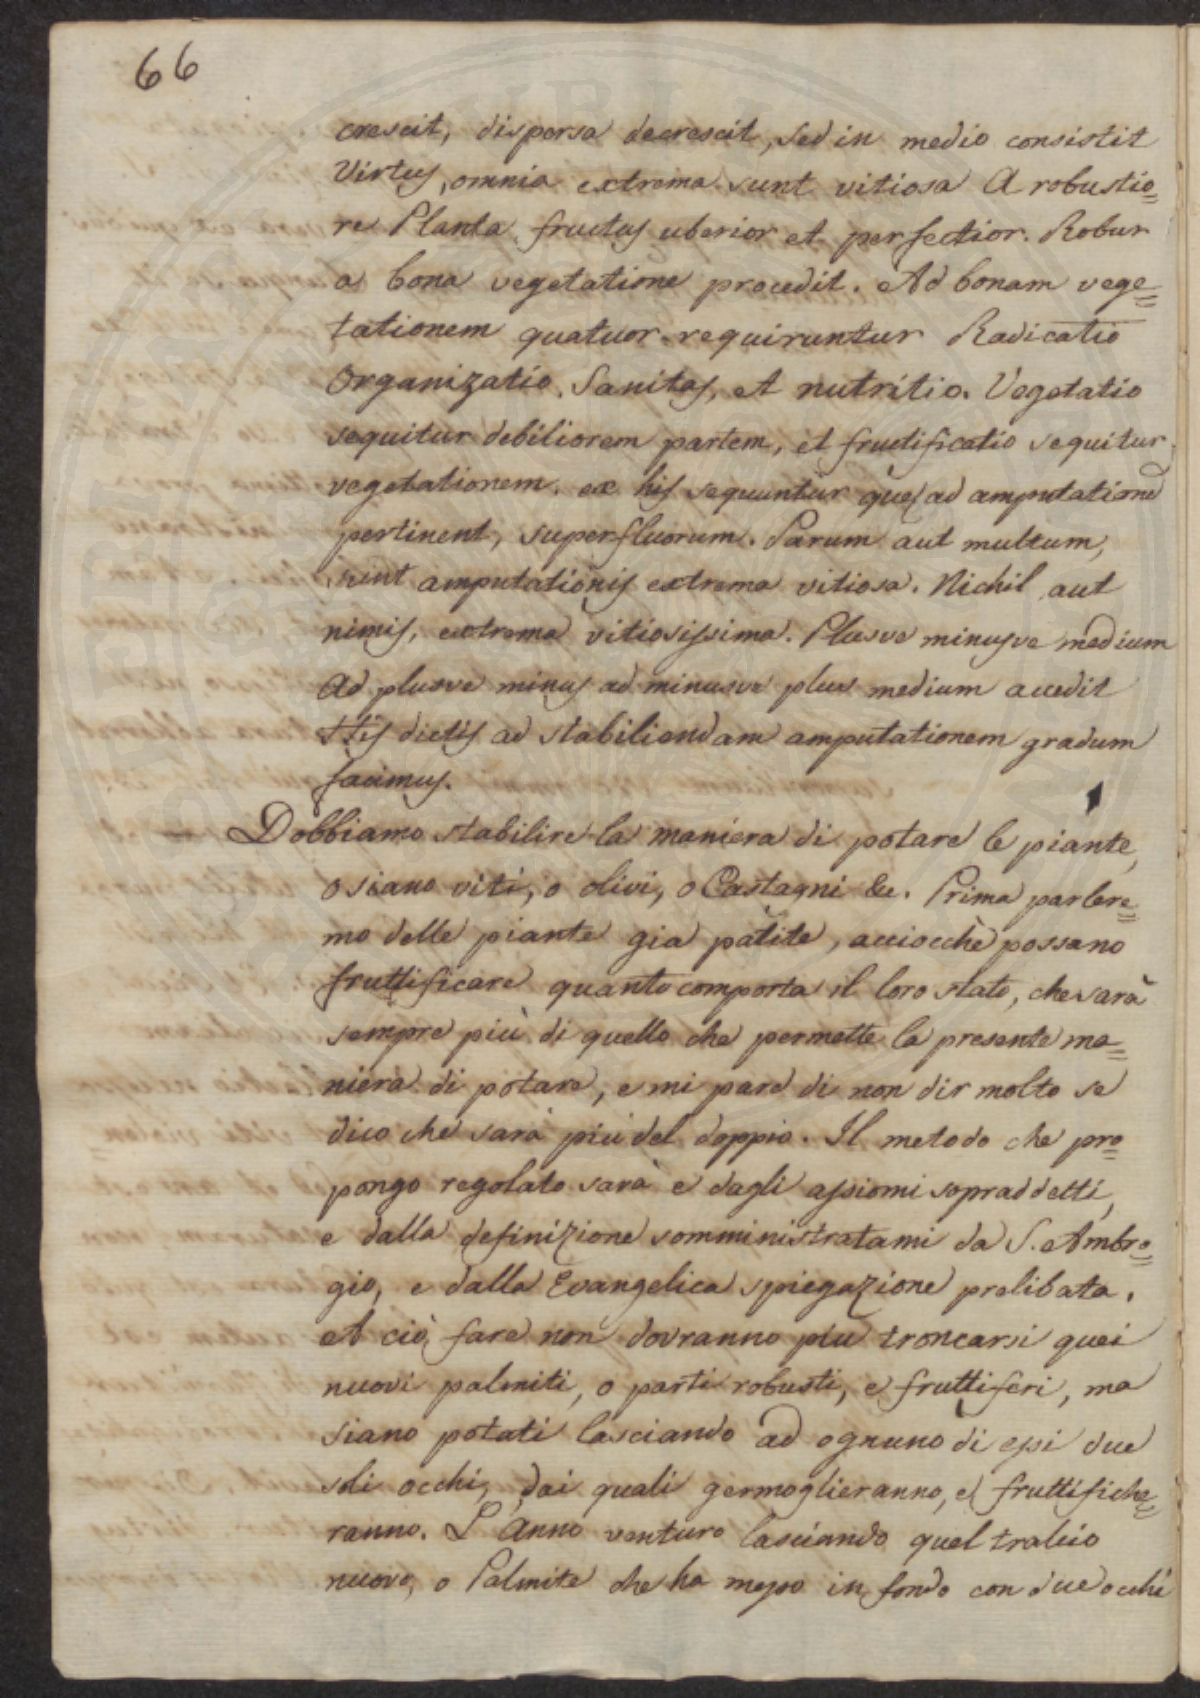 66
crescit, dispersa decrescit, sed in medio consistit
Virtus, omnia extrema sunt vitiosa A robustio=
re Planta fructus uberior et perfectior. Robur
a bona vegetatione procedit. Ad bonam vege=
tationem quatuor requiruntur Radicatio
Organizatio, Sanitas, et nutritio. Vegetatio
sequitur debiliorem partem, et fructificatio sequitur
vegetationem. ex his sequuntur quę ad amputationē
pertinent, superfluorum. Parum aut multum,
sunt amputationis extrema vitiosa. Nichil aut
nimis, extrema vitiosissima. Plusve minusve medium
Ad plusve minus ad minusve plus medium accedit
His dictis ad stabiliendam amputationem gradum
facimus.
Dobbiamo stabilire la maniera di potare le piante,
o siano viti, o olivi, o Castagni &c. Prima parlere=
mo delle piante gia patite, acciocchè possano
fruttificare quanto comporta il loro stato, che sarà
sempre più di quello che permette la presente ma=
niera di potare, e mi pare di non dir molto se
dico che sarà più del doppio. Il metodo che pro=
pongo regolato sarà e dagli assiomi sopraddetti,
e dalla definizione somministratami da S. Ambro=
gio, e dalla Evangelica spiegazione prelibata.
A ciò fare non dovranno più troncarsi quei
nuovi palmiti, o parti robusti, e fruttiferi, ma
siano potati lasciando ad ognuno di essi due
soli occhi, dai quali germoglieranno, e fruttifiche=
ranno. L'Anno venturo lasciando quel tralcio
nuovo, o Palmite che ha messo in fondo con due occhi